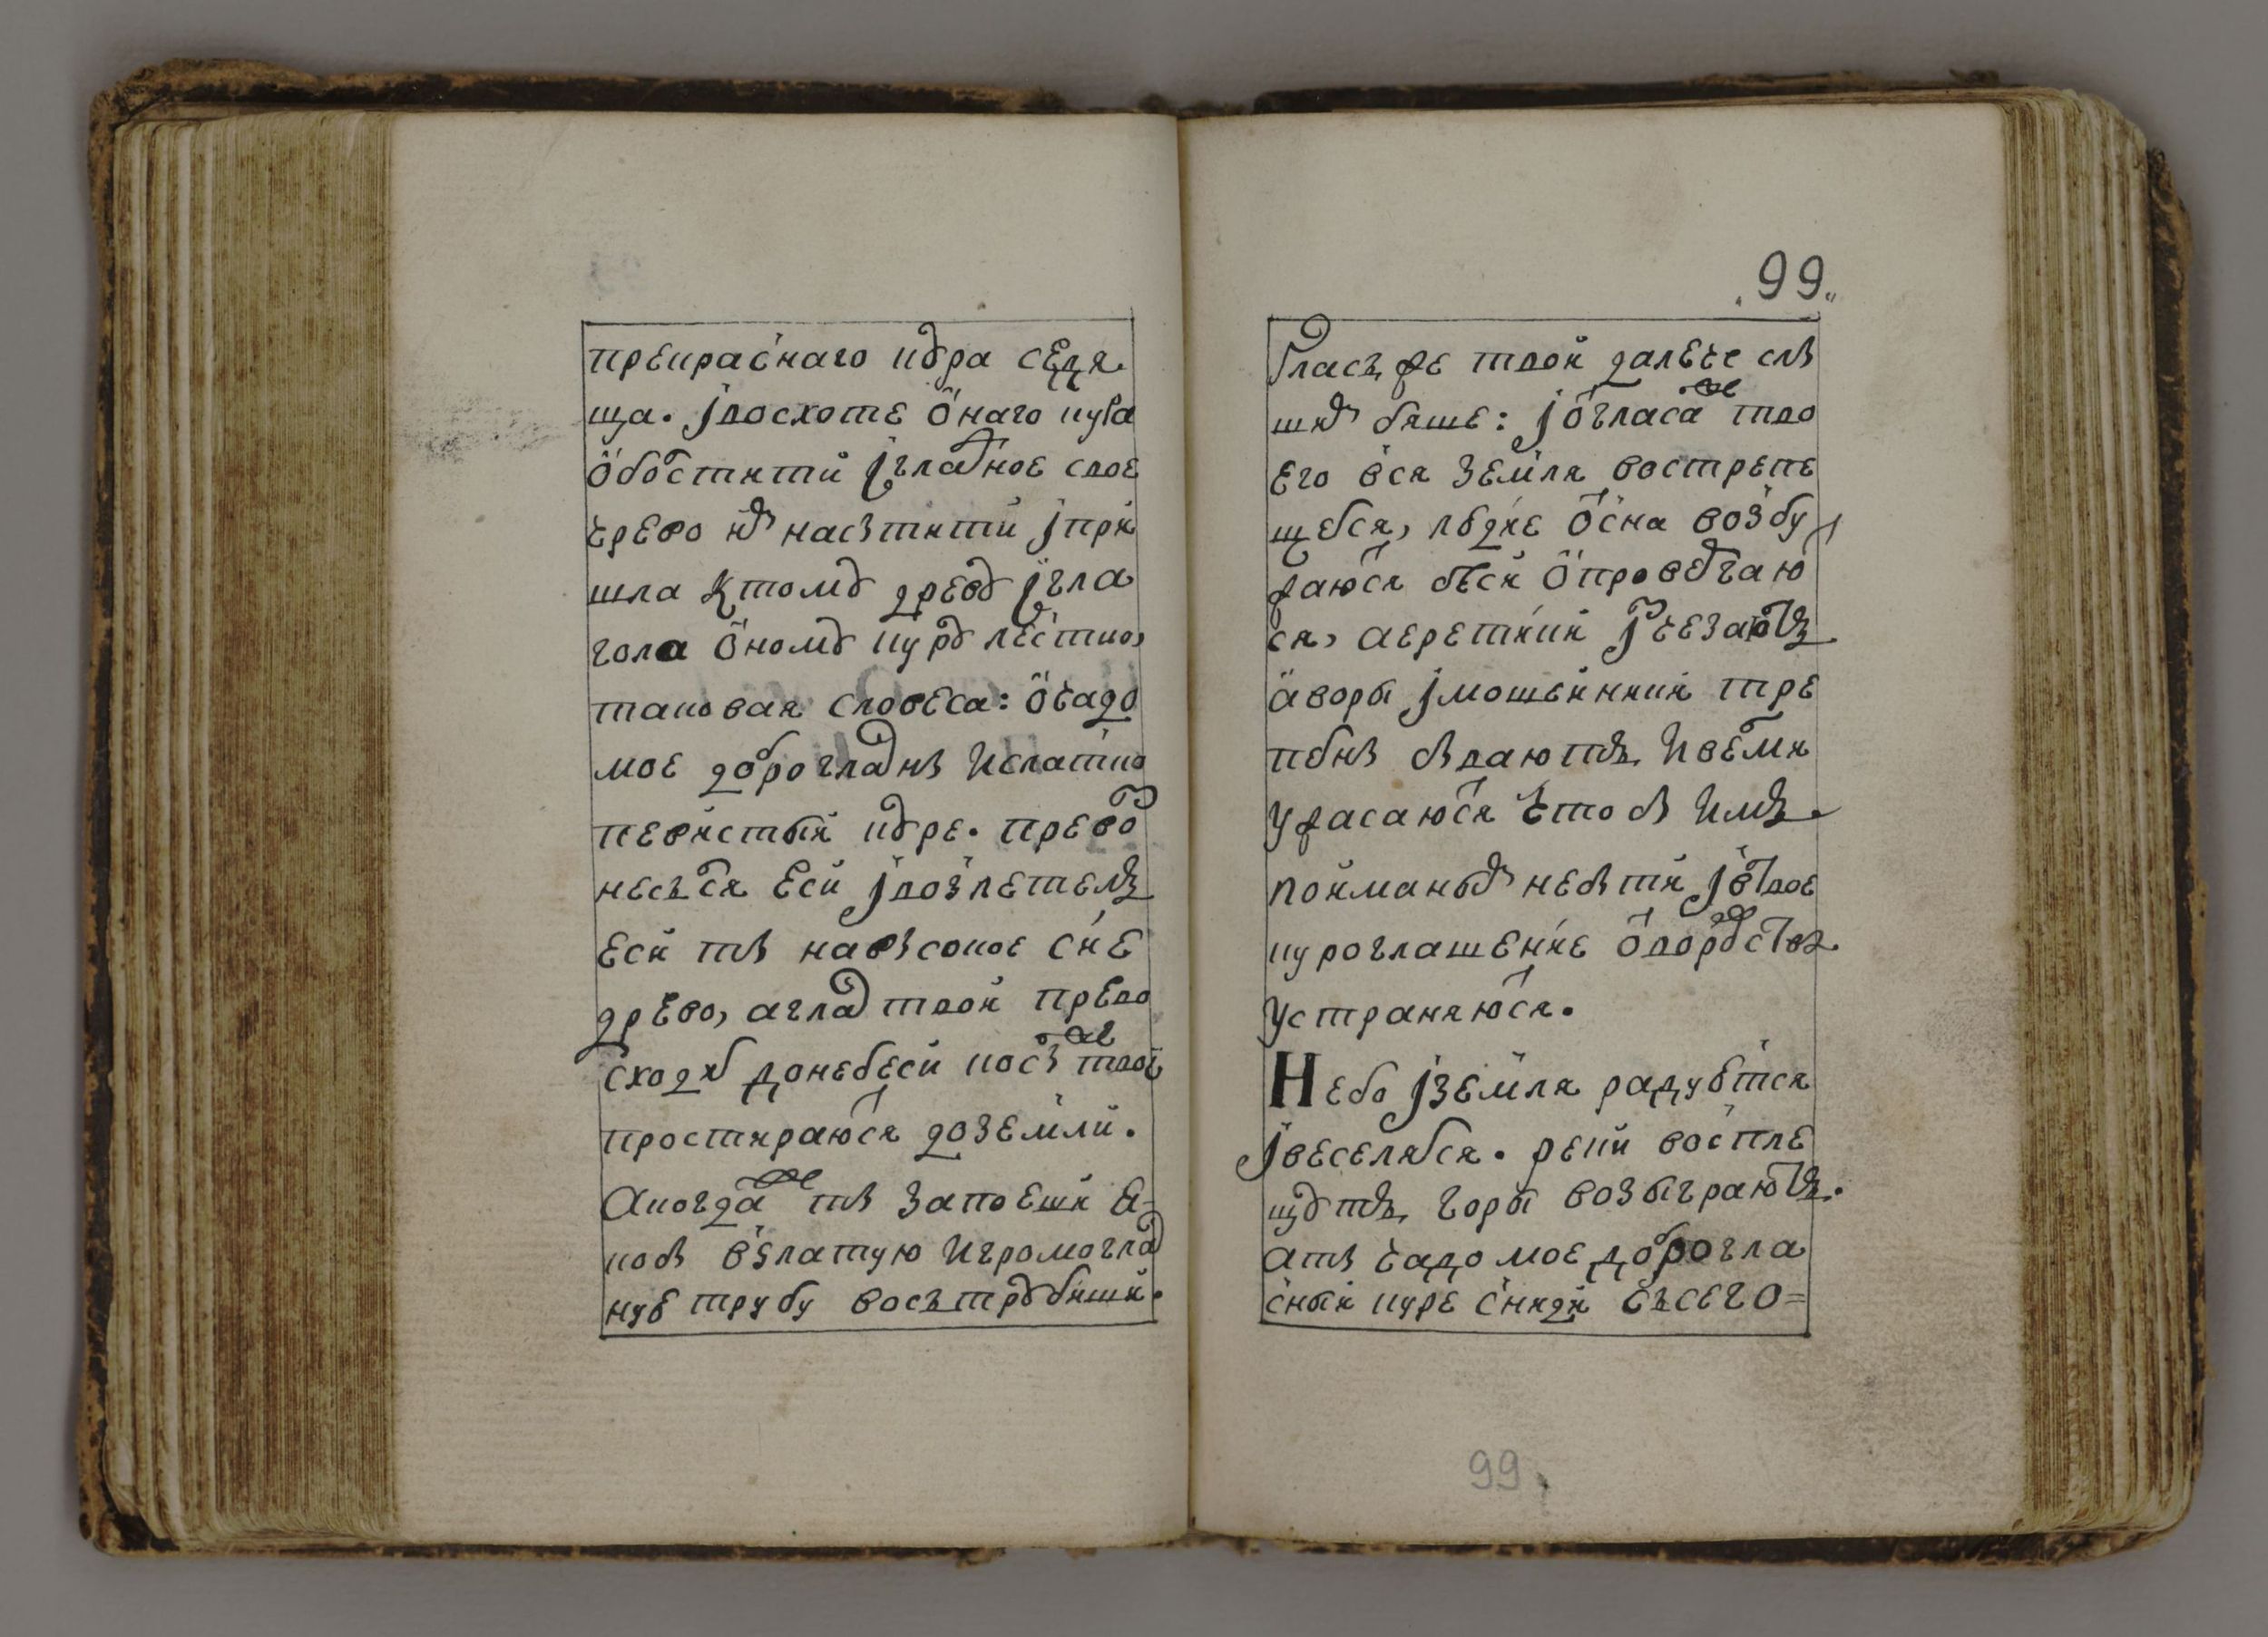 прекраснаго кура седя
ща. івосхоте онаго кура
оболстити ігладное свое
чрево имъ насытити іпри
шла ктому древу ігла
гола оному куру лестно,
таковая словеса: очадо
мое доброгласны Излатно
перистый куре. превоз
неслъся еси івозлетелъ
еси ты навысокое сие
древо, агласъ твой прево
сходитъ донебеси косы же твои
простираются доземли.
Акогда же ты запоеши я-
кобы взлатую Игромогла
ную трубу вострубиши.
.99.
Гласъ же твой далече слы
шимъ бяше: іотгласа же тво
его вся земля востpепе
щетъся, людие отсна возбу
жаются бесы опровергаю
ся, аеретики ізчезаютъ
аворы імошенники тре
петны бываютъ Ивремя
ужасаются чтобы Имъ
пойманымъ небыти іотвое
курогл͏ашение отворовства
устраняются.
Небо іземля радуется
івеселятся. реки воспле
щутъ горы возыграютъ.
Аты чадо мое доброгла
сный куре сниди съсего=
99.